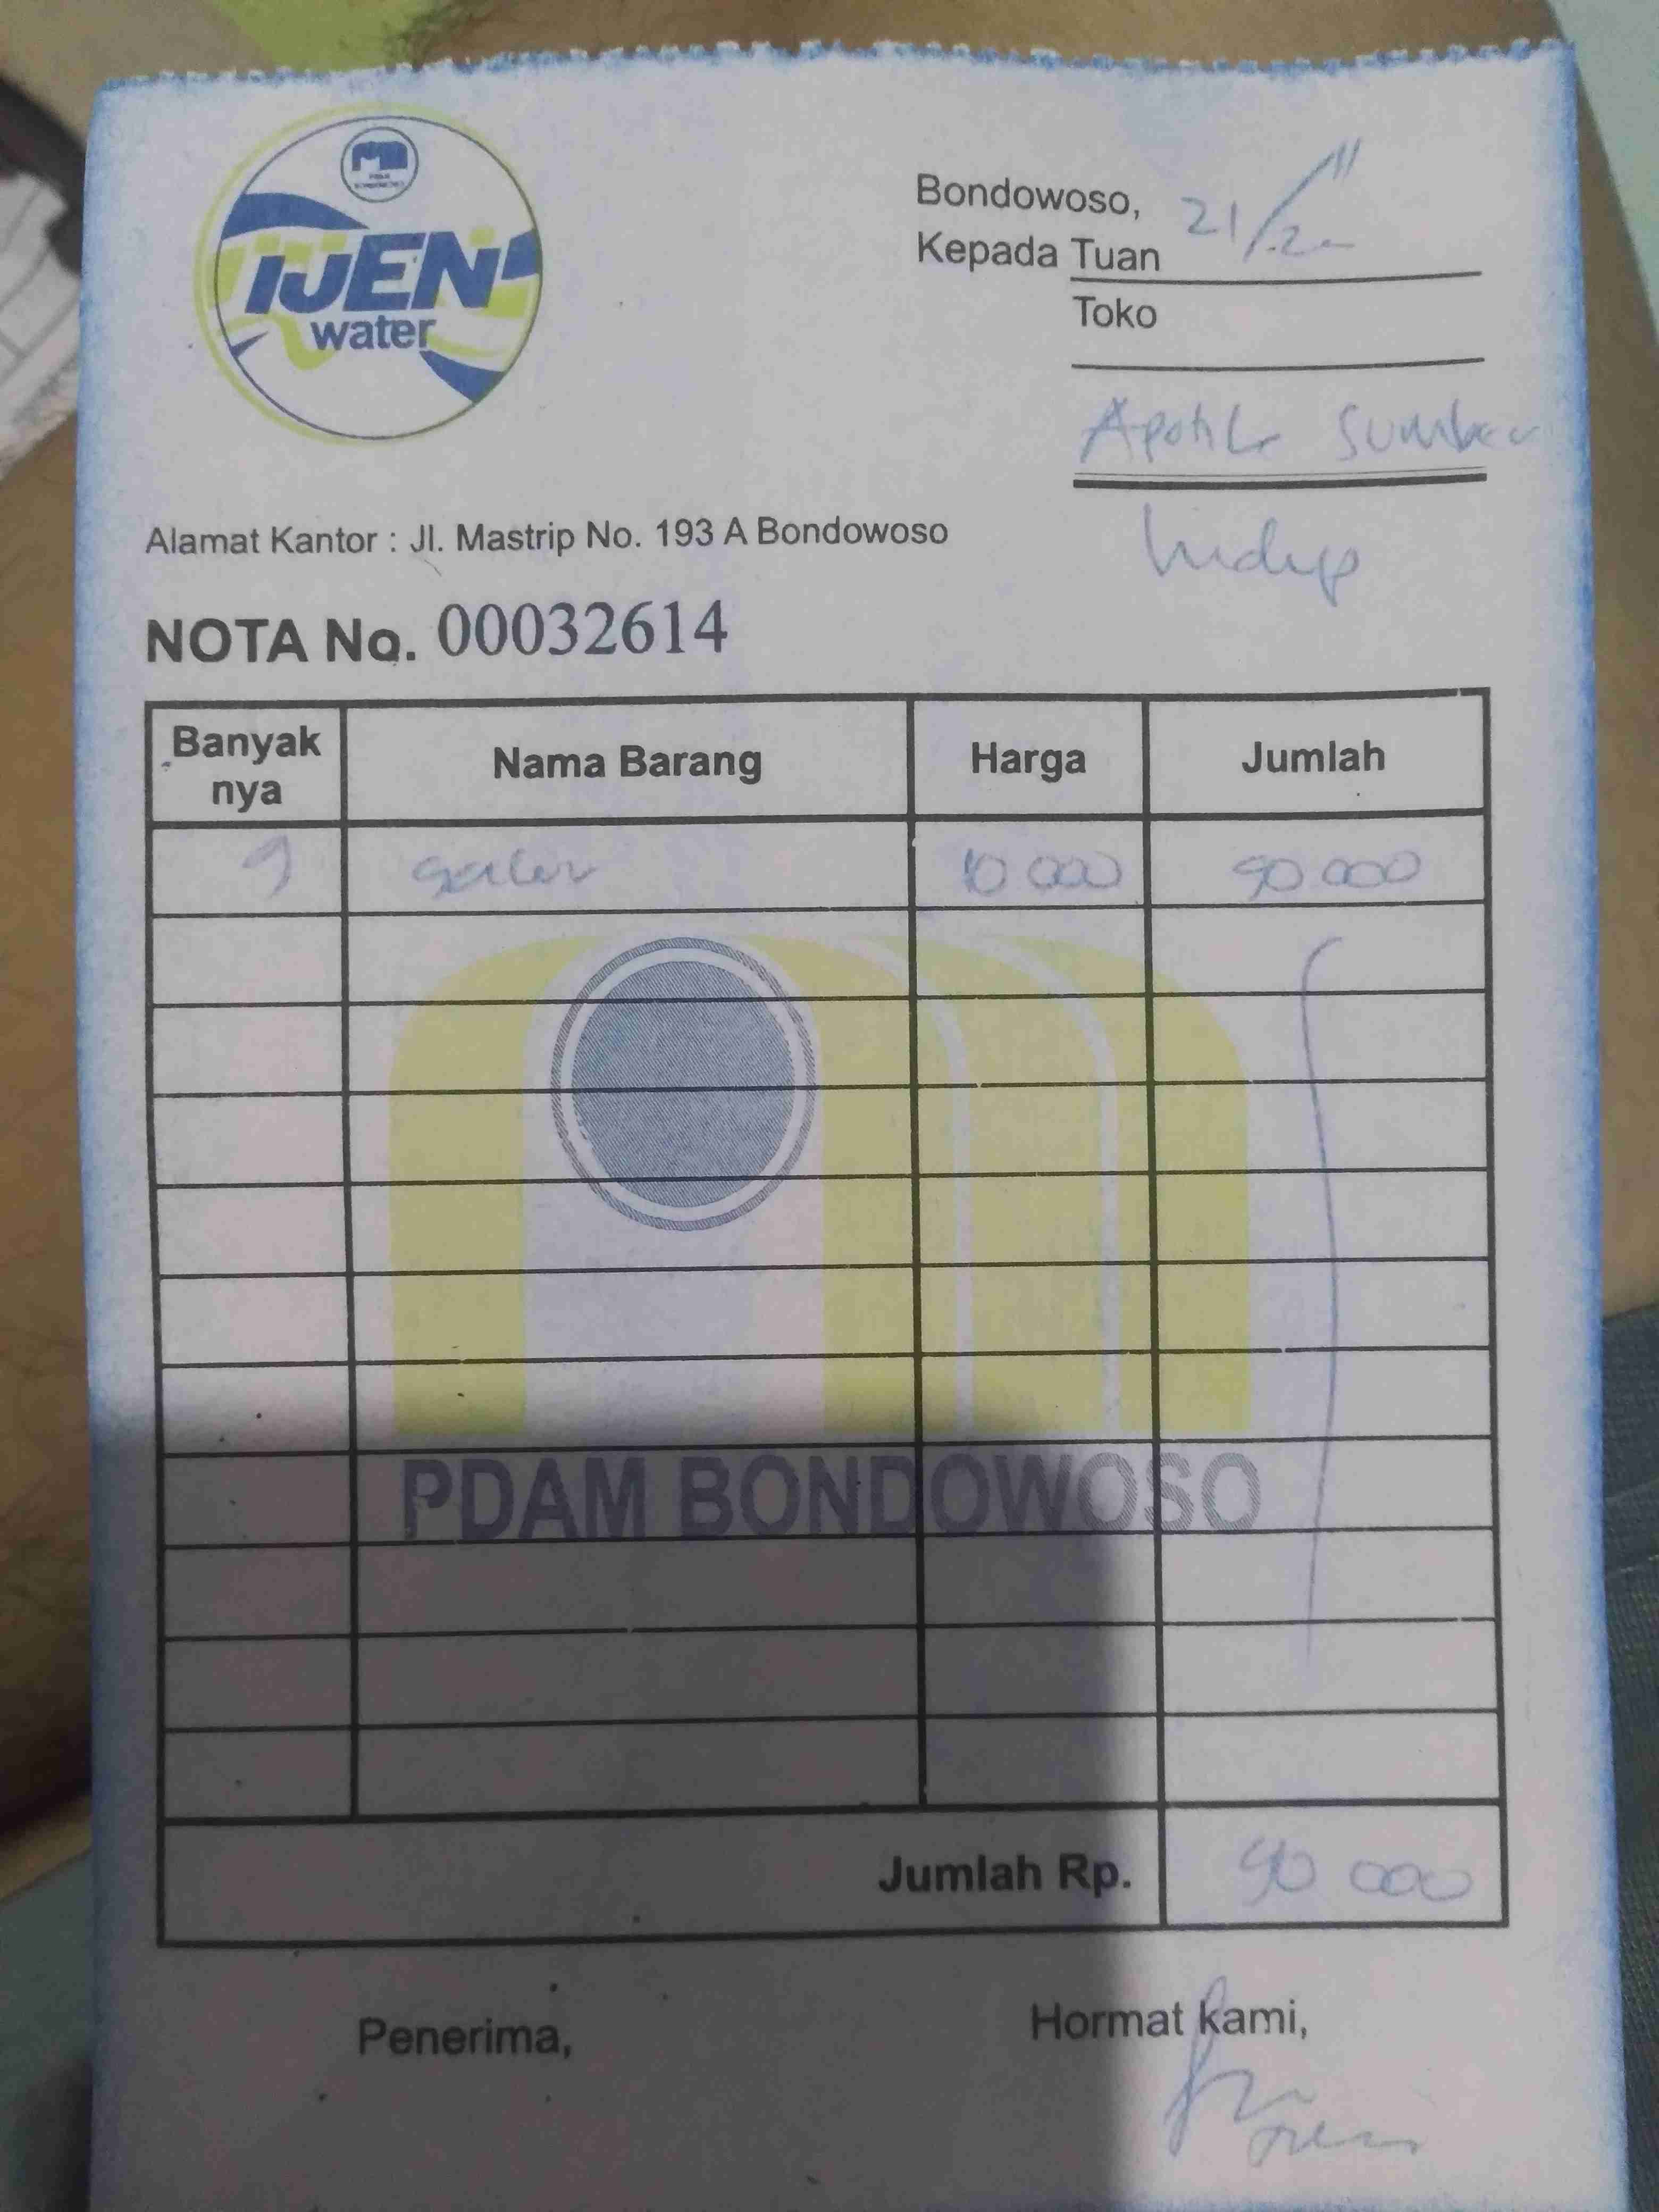 PDAM
BONDOWOSO
IJEN
water
Bondowoso, 21/11
Kepada Tuan
Toko
Apotik Sumber
hidup
Alamat Kantor : Jl. Mastrip No. 193 A Bondowoso
NOTA No. 00032614
Banyak nya Nama Barang Harga Jumlah
9 galon 10 000 90 000
PDAM BONDOWOSO
Jumlah Rp. 90 000
Penerima, Hormat kami,